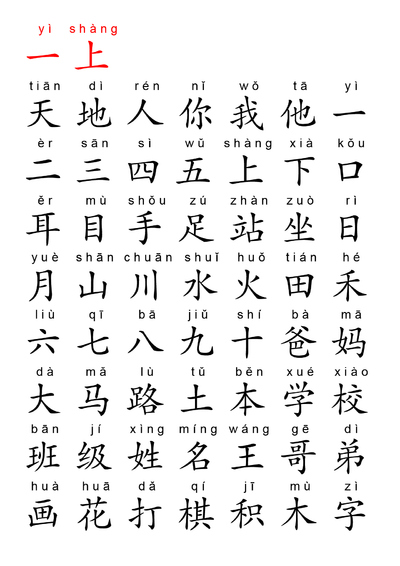 yì shàng
一上
tiān dì rén nǐ wǒ tā yì
天地人你我他一
èr sān sì wǔ shàng xià kǒu
二三四五上下口
ěr mù shǒu zú zhàn zuò rì
耳目手足站坐日
yuè shān chuān shuǐ huǒ tián hé
月山川水火田禾
liù qī bā jiǔ shí bà mā
六七八九十爸妈
dà mǎ lù tǔ běn xué xiào
大马路土本学校
bān jí xìng míng wáng gē dì
班级姓名王哥弟
huà huā dǎ qí jī mù zì
画花打棋积木字